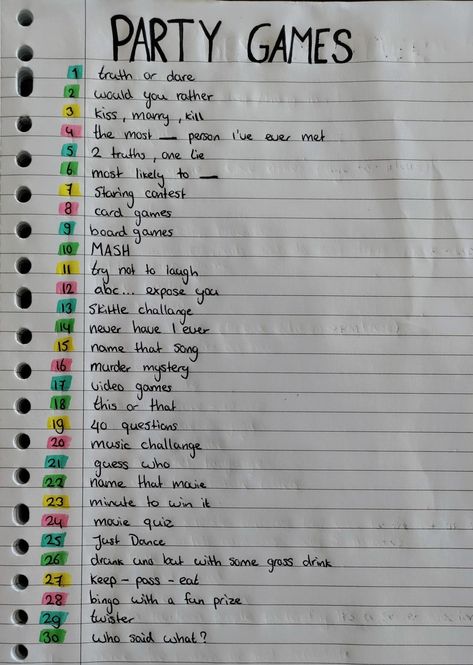 PARTY GAMES
1 truth or dare
2 would you rather
3 kiss, marry, kill
4 the most __ person I've ever met
5 2 truths, one lie
6 most likely to __
7 Staring contest
8 card games
9 board games
10 MASH
11 try not to laugh
12 abc... expose you
13 Skittle challange
14 never have I ever
15 name that song
16 murder mystery
17 video games
18 this or that
19 40 questions
20 music challange
21 guess who
22 name that movie
23 minute to win it
24 movie quiz
25 Just Dance
26 drunk uno but with some gross drink
27 keep - pass - eat
28 bingo with a fun prize
29 twister
30 who said what?